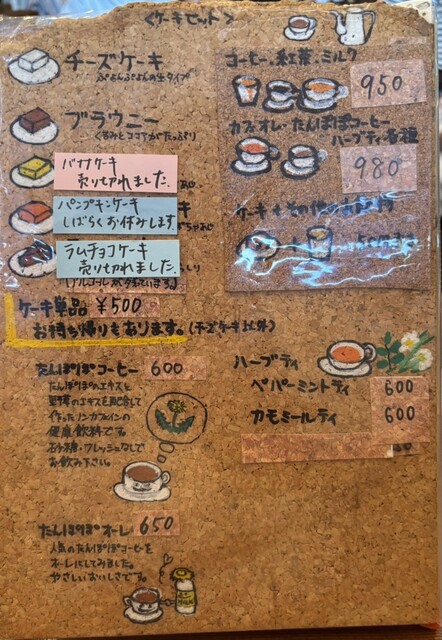 <ケーキセット>
チーズケーキ
ぷよんぷよんの生タイプ
ブラウニー
くるみとココアがたっぷり
バナナケーキ
売り切れました。
パンプキンケーキ
しばらくお休みします。
ラムチョコケーキ
売り切れました。
ケーキ単品 ¥500
お持ち帰りもあります。(チーズケーキ以外)
コーヒー、紅茶、ミルク
950
カフェオレ・たんぽぽコーヒー
ハーブティ各種
980
たんぽぽコーヒー 600
たんぽぽのエキスと
野草のエキスを配合して
作ったノンカフェインの
健康飲料です。
砂糖・フレッシュなしで
お飲み下さい。
たんぽぽオーレ 650
人気のたんぽぽコーヒーを
オーレにしてみました。
やさしいおいしさです。
MILK
ハーブティ
ペパーミントティ 600
カモミールティ 600